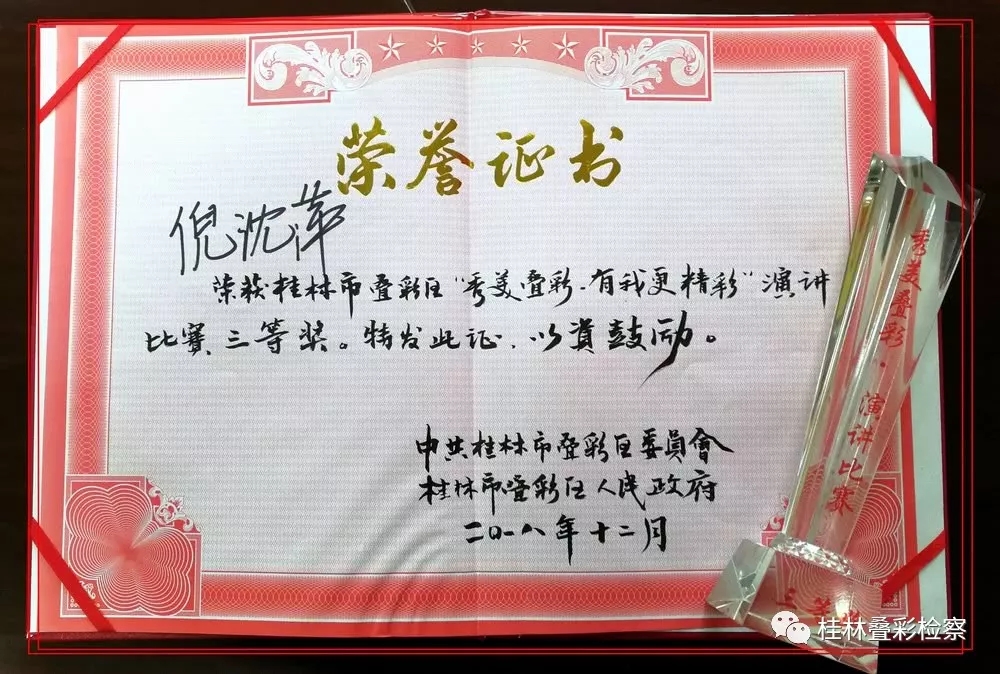 荣誉证书
倪沈萍
荣获桂林市叠彩区“秀美叠彩·有我更精彩”演讲
比赛三等奖。特发此证,以资鼓励。
中共桂林市叠彩区委員會
桂林市叠彩区人民政府
二〇一八年十二月
秀美叠彩·演讲比赛
三等奖
桂林叠彩检察